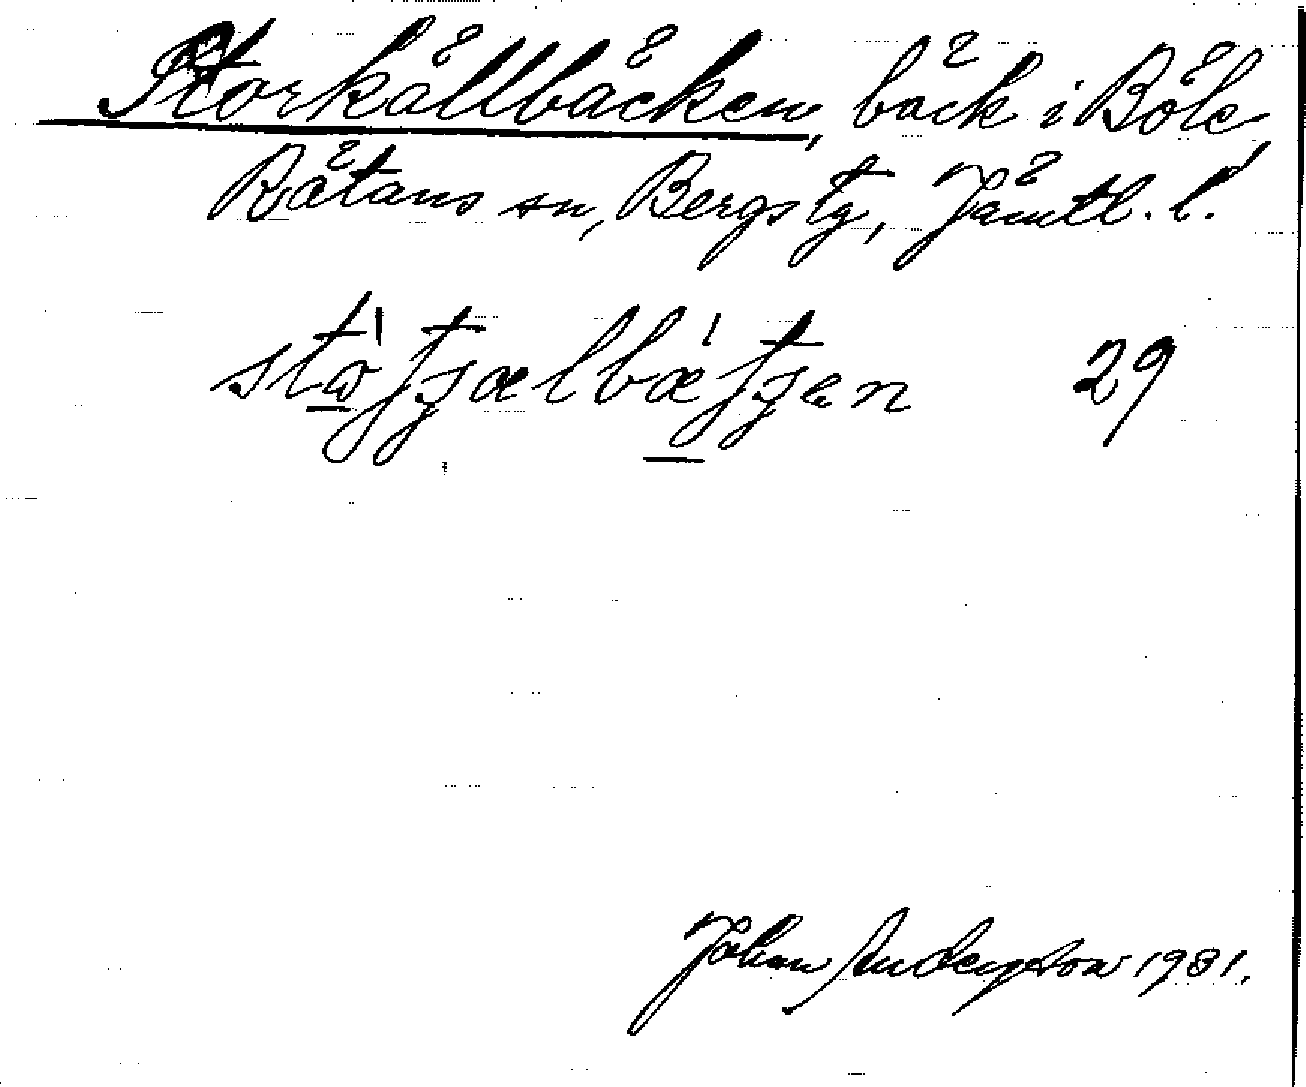 Storkällbäcken, bäck i Böle
Rätans sn, Bergs tg, Jämtl. l.
29
Johan Anderson 1931.